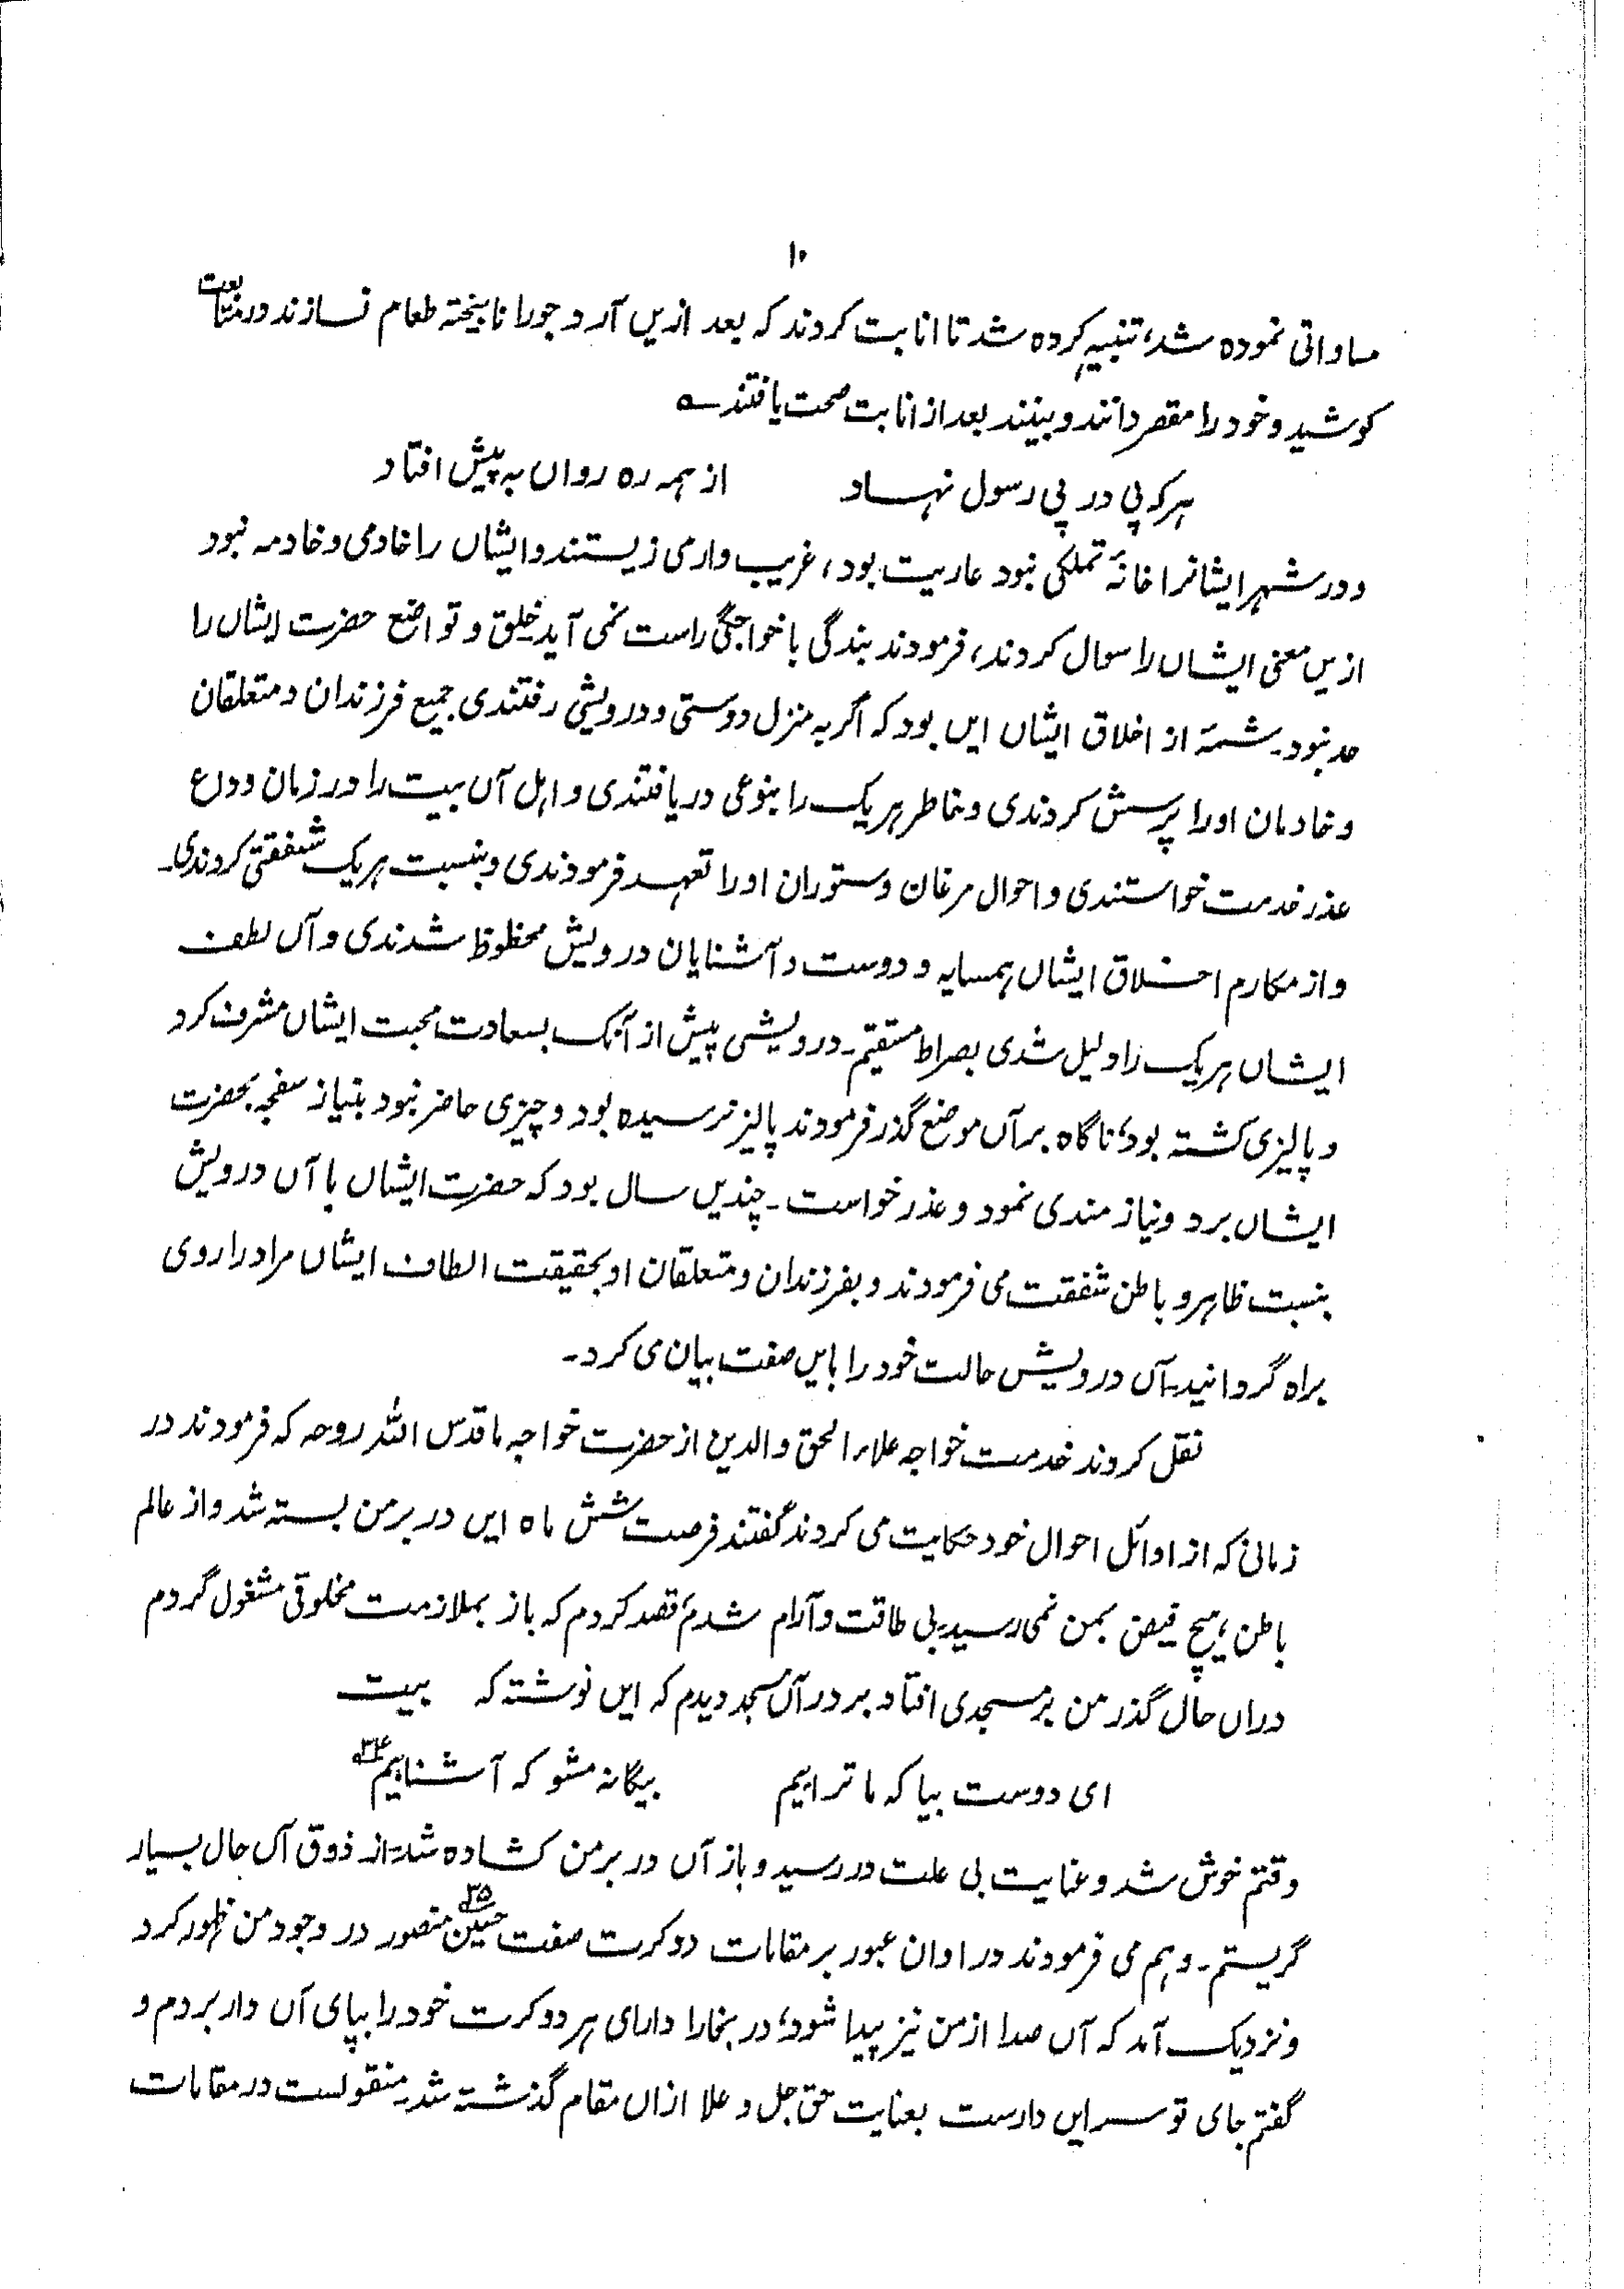 ۱۰
مساواتی نموده شد، تنبیه کرده شد تا انابت کردند که بعد ازیں آرد جو را نابیخته طعام نسازند در متابعت
کوشید و خود را مقصر دانند و بینند بعد از انابت صحت یافتند ـه
هر که پی در پی رسول نهاد از همه ره رواں به پیش افتاد
و در شهر ایشانرا خانۀ تملکی نبود عاریت بود، غریب وار می زیستند و ایشاں را خادمی و خادمه نبود
ازیں معنی ایشاں را سوال کردند، فرمودند بندگی با خواجگی راست نمی آید۔ خلق و تواضع حضرت ایشاں را
حد نبود۔ شمۀ از اخلاق ایشاں ایں بود که اگر به منزل دوستی و درویشی رفتندی جمیع فرزندان و متعلقان
و خادمان او را پرسش کردندی و خاطر هر یک را بنوعی دریافتندی و اهل آں بیت را در زمان وداع
عذر خدمت خواستندی و احوال مرغان و ستوران او را تعهد فرمودندی و بنسبت هر یک شفقتی کردندی۔
و از مکارم اخلاق ایشاں همسایه و دوست و آشنایان درویش محظوظ شدندی و آں لطف
ایشاں هر یک را دلیل شدی بصراط مستقیم۔ درویشی پیش از آنک بسعادت محبت ایشاں مشرف کرد
و پالیزی کشته بود، ناگاه بر آں موضع گذر فرمودند پالیز نرسیده بود و چیزی حاضر نبود بنیاز سفچه بحضرت
ایشاں برد و نیازمندی نمود و عذر خواست۔ چندیں سال بود که حضرت ایشاں با آں درویش
بنسبت ظاهر و باطن شفقت می فرمودند و بفرزندان و متعلقان او بحقیقت الطاف ایشاں مراد را روی
براه گردانید۔ آں درویش حالت خود را بایں صفت بیان می کرد۔
نقل کردند خدمت خواجه علاء الحق و الدین از حضرت خواجه ما قدس الله روحه که فرمودند در
زمانی که از اوائل احوال خود حکایت می کردند گفتند فرصت شش ماه ایں در بر من بسته شد و از عالم
باطن هیچ فیض بمن نمی رسید۔ بی طاقت و آرام شدم، قصد کردم که باز بملازمت مخلوقی مشغول گردم
دراں حال گذر من بر مسجدی افتاد بر در آں مسجد دیدم که ایں نوشته که بیت
ای دوست بیا که ما ترا ایم بیگانه مشو که آشناییم ۳۴
وقتم خوش شد و عنایت بی علت در رسید و باز آں در بر من کشاده شد۔ از ذوق آں حال بسیار
گریستم۔ و هم می فرمودند در اوان عبور بر مقامات دو کرت صفت حسین ۳۵ منصور در وجود من ظهور کرد
و نزدیک آمد که آں صدا از من نیز پیدا شود، در بخارا دارای هر دو کرت خود را بپای آں دار بردم و
گفتم جای تو سر ایں دارست بعنایت حق جل و علا ازاں مقام گذشته شد۔ منقولست در مقامات